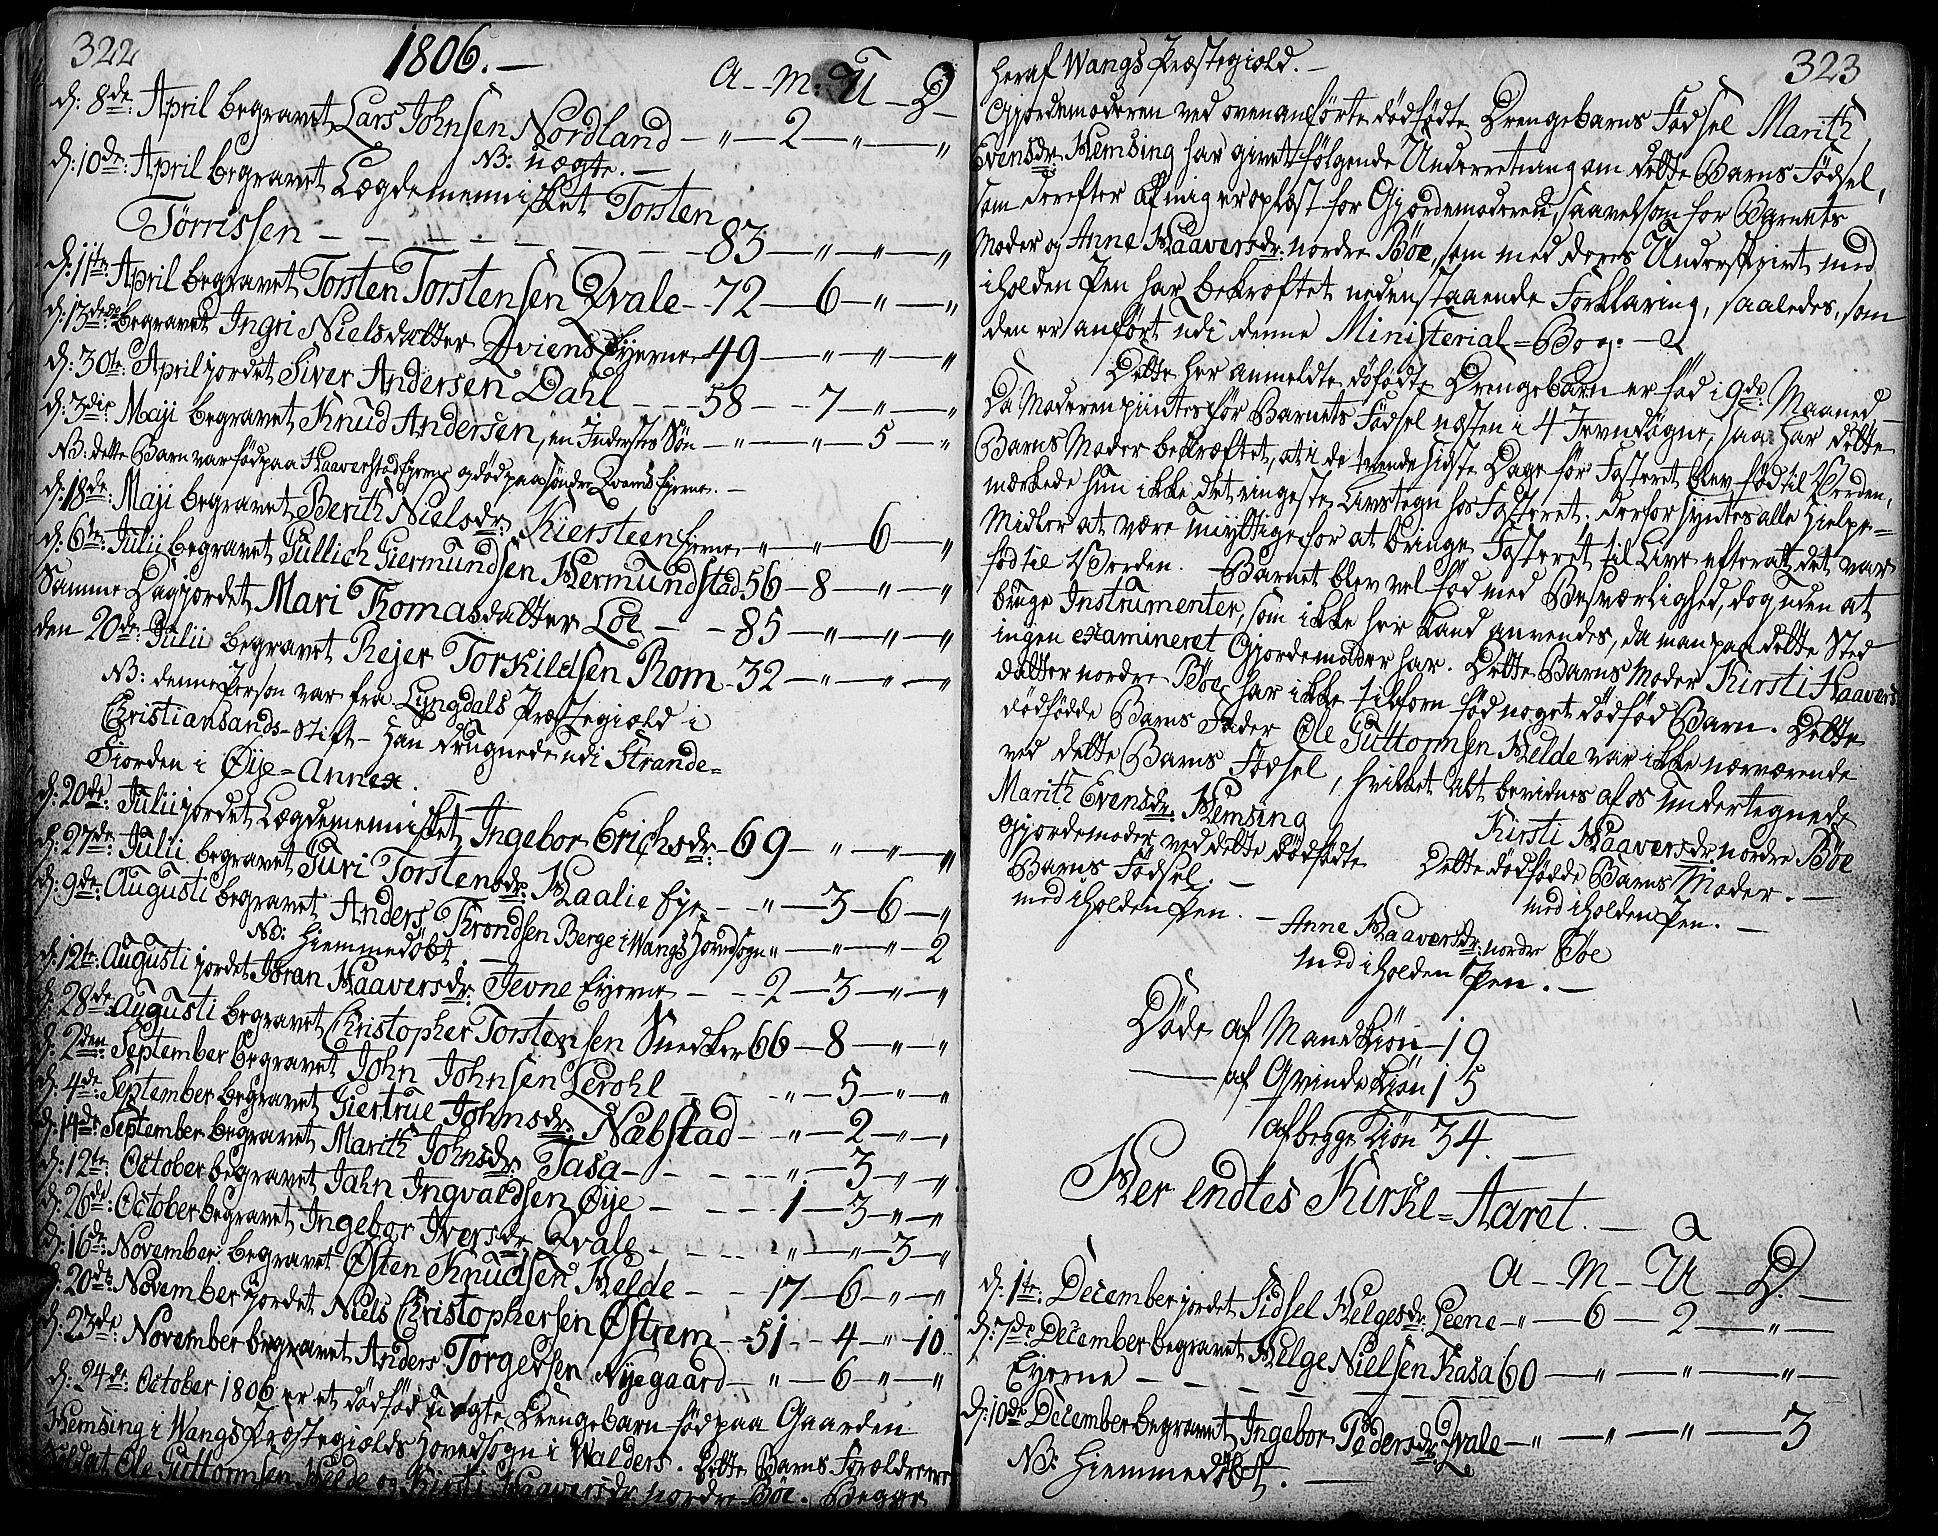 322
1806. —
A — M: — U — D
d: 8de: April begravet Lars Johnsen Nordland — " — 2 — " — "
NB: uægte. —
d: 10de: April begravet Lægdemennisket Torsten
Torrissen — — — — — 83 — " — " — "
d: 11te: April begravet Torsten Torstensen Qvale — 72 — 6 — " — "
d: 13de: begravet Ingri Nielsdatter Qviens Eyerne 49 — " — " — "
d: 30te: April jordet Siver Andersen Dahl — — 58 — 7 — " — "
d: 3die Maji begravet Knud Andersen, en Inderstes Søn — " — " — 5 — "
NB: dette Barn var født paa Haaverstad Eyerne og død paa søndre Qvams Eyerne. —
d: 18de: Maji begravet Berith Nielsdr: Kiersteen Eyerne — " — " — 6 — "
d: 6te: Julii begravet Gullich Giermundsen Hermundstad 56 — 8 — " — "
Samme Dag jordet Mari Thomasdatter Loe — — 85 — " — " — "
den 20de: Julii begravet Rejer Torkildsen Rom — 32 — " — " — "
NB: denne Person var fra Lyngdals Præstegiæld i
Christiansands-Stift — Han drugnede udi Strande-
Fiorden i Øye-Annex.
d: 20de: Julii jordet Lægdemennisket Ingebor Erichsdr: — 69 — " — " — "
d: 27de: Julii begravet Guri Torstensdr: Haalie Eye — — " — 3 — 6 — "
d: 9de: Augusti begravet Anders Trondsen Berge i Wangs Hovedsogn " — " — " — 2
NB: Hiemmedøbt. —
d: 12te: Augusti jordet Joran Haaversdr: Jevne Eyerne — — 2 — 3 — " — "
d: 28de: Augusti begravet Christopher Torstensen Snedker 66 — 8 — " — "
d: 2den: September begravet John Johnsen Lerohl — — " — 5 — " — "
d: 4de: September begravet Giertrue Johnsdr: Næbstad — " — 2 — " — "
d: 14de: September begravet Marith Johnsdr: Tasa — — — " — 3 — " — "
d: 12te: October begravet Jahn Ingvaldsen Øye — — — 1 — 3 — " — "
d: 26de: October begravet Ingebor Iversdr: Qvale — — — " — " — 3 — "
d: 16de: November begravet Østen Knudsen Helde — — 17 — 6 — " — "
d: 20de: November jordet Niels Christophersen Østrem — 51 — 4 — " — 10
d: 23de: November begravet Anders Torgersen Nyegaard — " — 6 — " — "
d: 24de: October 1806 er et dødfød uægte Drengebarn fød paa Gaarden
Hemsing i Wangs Præstegiælds Hovedsogn i Walders. Dette Barns Forældre ere
Soldat Ole Guttormsen Helde og Kirsti Haaversdr: nordre Bøe. Begge
323
heraf Wangs Præstegiæld. —
Gjordemoderen ved ovenanførte dødfødte Drengebarns Fødsel Marith
Evensdr: Hemsing har givet følgende Underretning om dette Barns Fødsel,
som derefter af mig er oplæst for Gjordemoderen, saavelsom for Barnets
Moder og Anne Haaversdr: nordre Bøe, som med deres Underskrivt med
iholden Pen har bekræftet nedenstaaende Forklaring, saaledes, som
den er anført udi denne Ministerial-Bog. —
Dette her anmeldte døfødte Drengebarn er fød i 9de: Maaned
Da Moderen piintes før Barnets Fødsel næsten i 4 Jevndøgne, saa har dette
Barns Moder bekræftet, at i de tvende sidste Dage før Fosteret blev fød til Verden,
mærkede hun ikke det ringeste Livstegn hos Fosteret. derfor syntes alle Hielpe-
Midler at være unyttige for at bringe Fosteret til Live efterat det var
fød til Verden. Barnet blev vel fød med Besværlighed, dog uden at
bruge Instrumenter, som ikke her kand anvendes, da man paa dette Sted
ingen examineret Gjordemoder har. Dette Barns Moder Kirsti Haavers
datter nordre Bøe har ikke tilforn fød noget dødfød Barn. Dette
dødfødde Barns Fader Ole Guttormsen Helde var ikke nærværende
ved dette Barns Fødsel, hvilket Alt bevidnes af os Undertegnede
Marith Evensdr: Hemsing
Gjordemoder ved dette dødfødte
Barns Fødsel. —
med iholden Pen. —
Kirsti Haaversdr: nordre Bøe
Dette dødfødde Barns Moder. —
med iholden Pen. —
Anne Haaversdr: nordre Bøe
med iholden Pen. —
Døde af Mandkiøn — 19
— af Qvindekiøn 15
af begge Kiøn 34. —
Her endtes Kirke-Aaret. —
A — M — U — D. —
d: 1te: December jordet Sidsel Helgesdr: Leene — " — 6 — 2 — " —
d: 7de December begravet Helge Nielsen Kasa 60 — " — " — " —
Eyerne — — — — — —
d: 10de December begravet Ingebor Pedersdr: Qvale — " — " — " — 3
NB: Hiemmedøbt. —